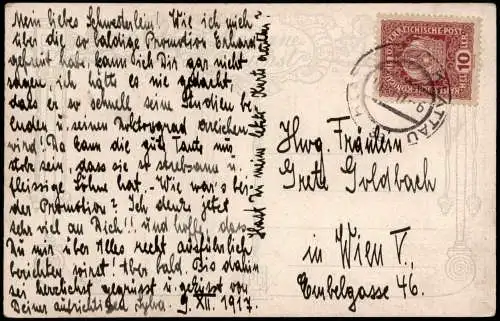 Mein liebes Schwesterlein! Wie ich mich
über die so baldige Promotion Erhards
gefreut hab, kann ich Dir gar nicht
sagen, ich hätte es nie gedacht,
dass er so schnell seine Studien be-
enden u. seinen Doktorgrad erreichen
wird! Da kann die gute Tante nur
stolz sein, dass sie so strebsame u.
fleissige Söhne hat. - Wie war's bei
der Promotion? Ich denke jetzt
sehr viel an Dich!! und hoffe, dass
Du mir über Alles recht ausführlich
berichten wirst! Aber bald. Bis dahin
sei herzlichst gegrüsst u. geküsst von
Deiner aufrichtigen
9. XII. 1917.
Hast Du mein letzte Karte erhalten?
ERREICHISCHE POST
10
HELLER
ATTAU
Hwg. Fräulein
Grete Goldbach
in Wien V.,
Embelgasse 46.